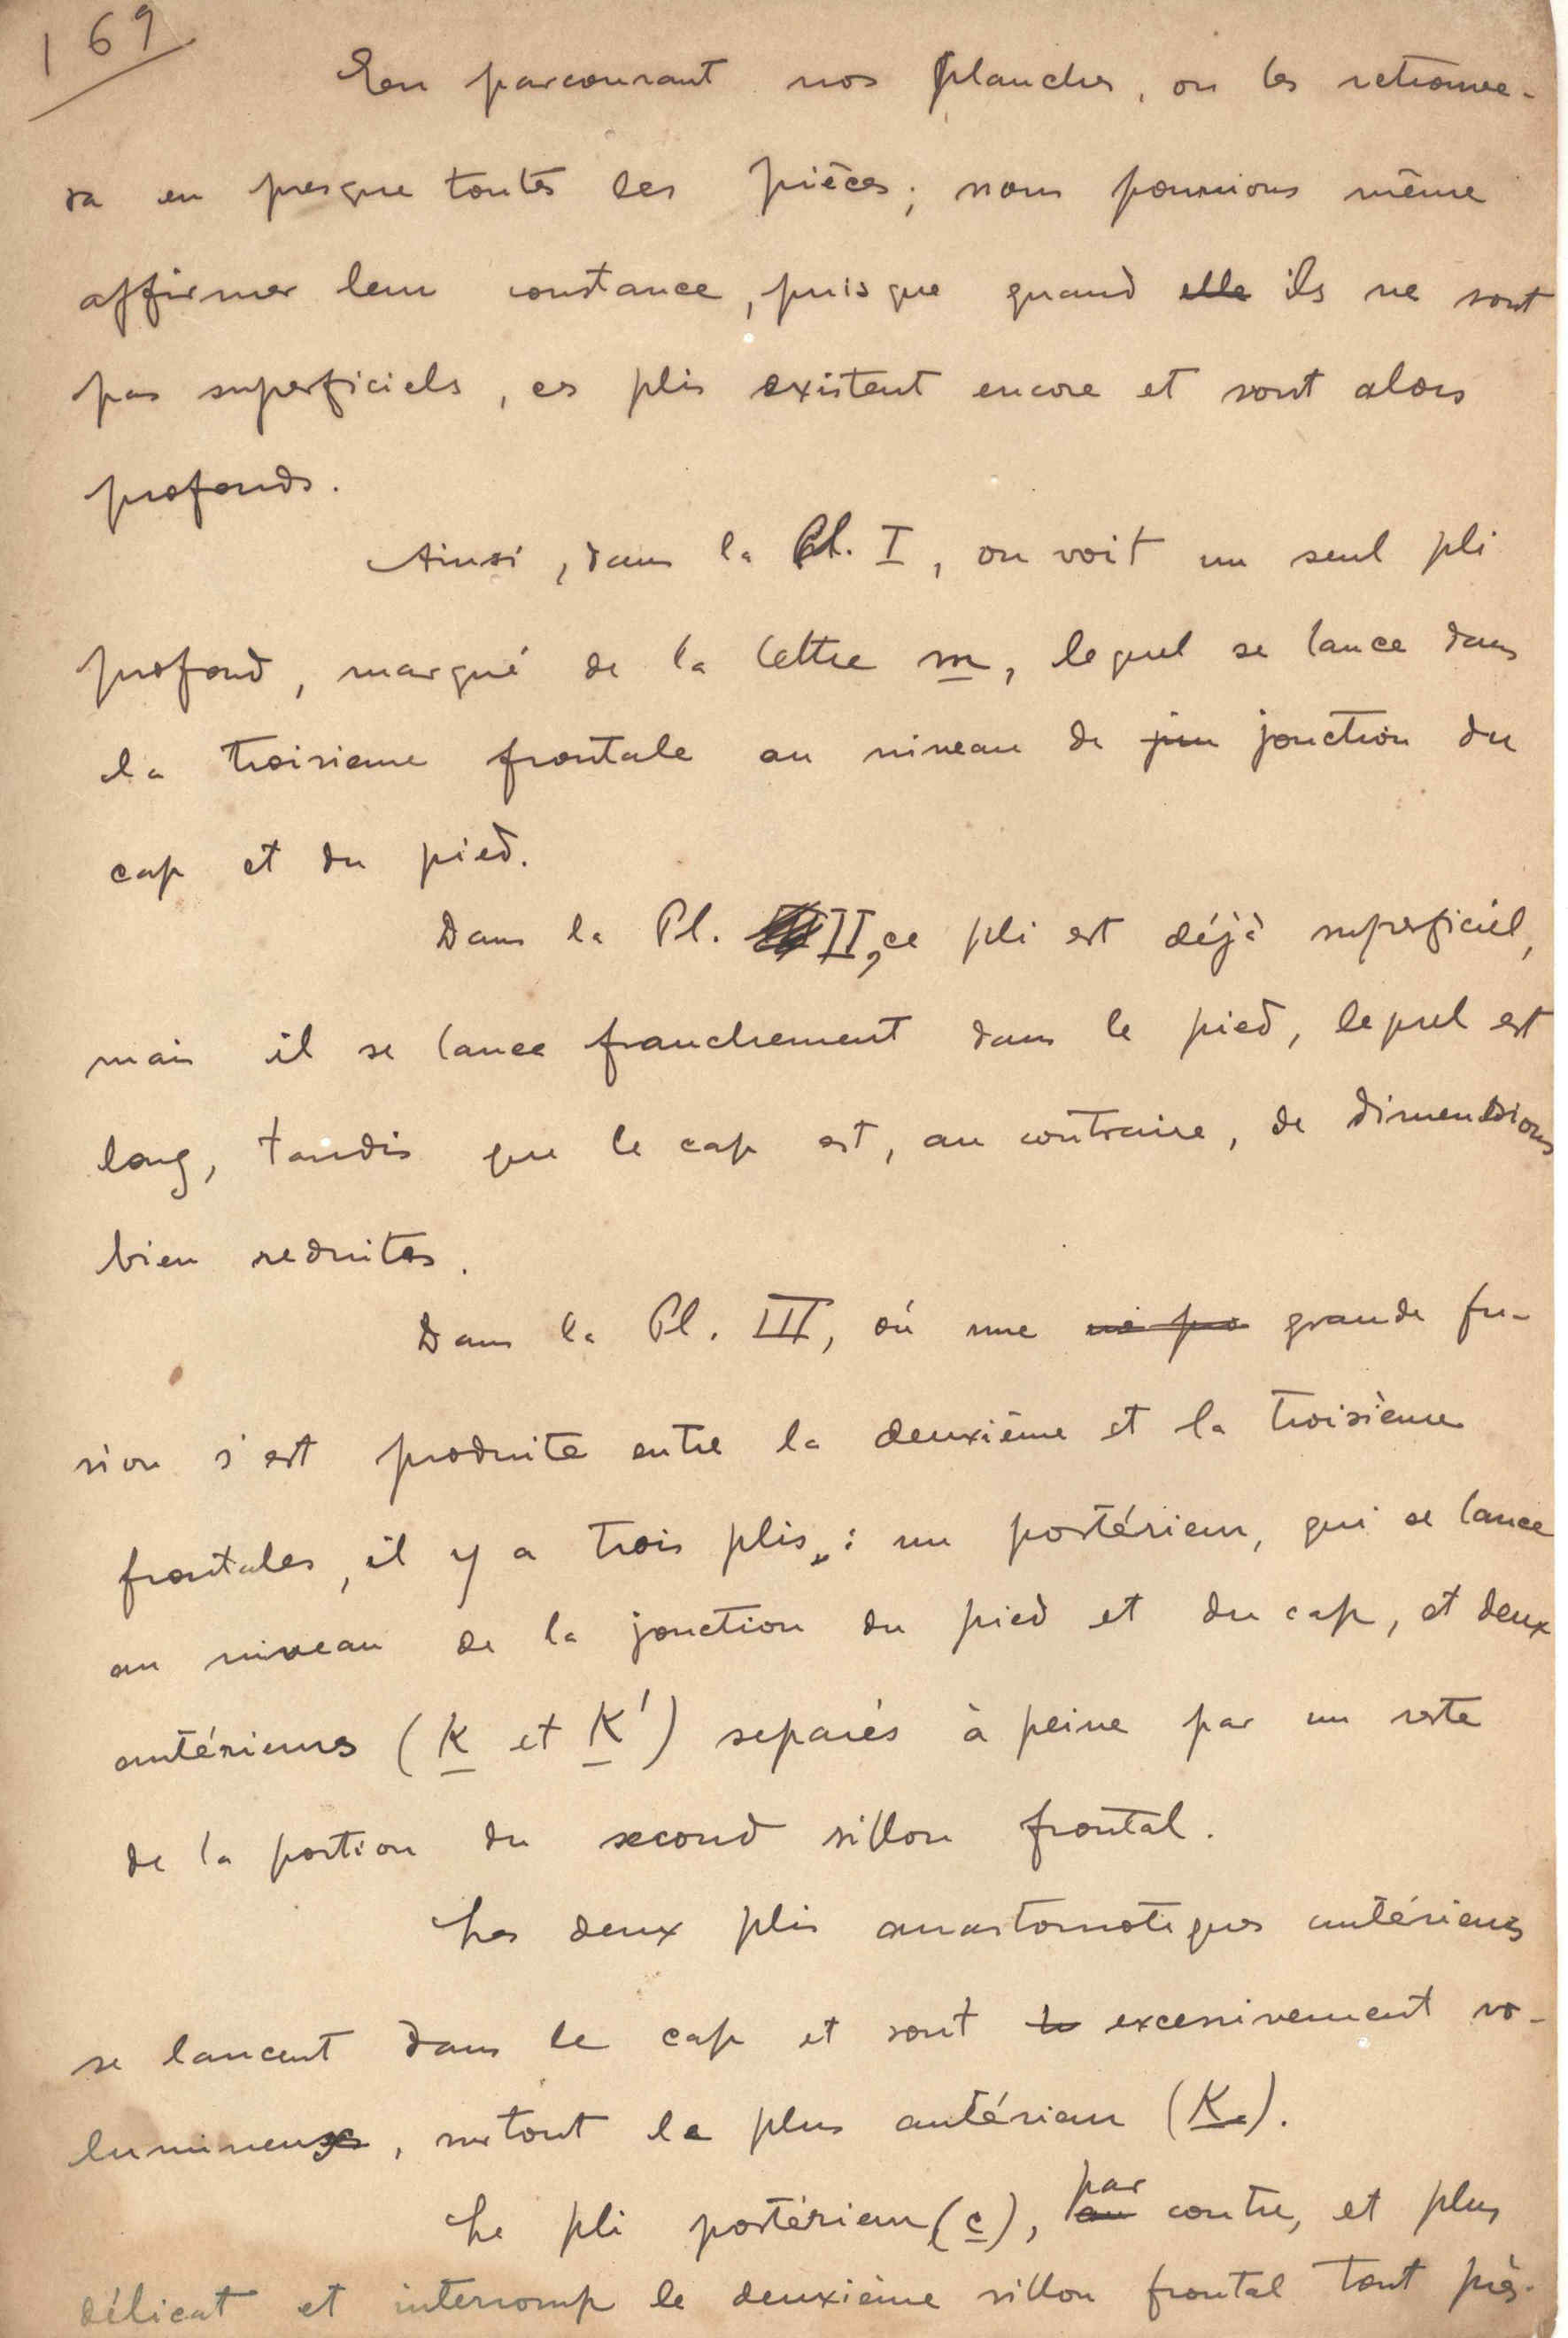 169
En parcourant nos planches, on les retrouve-
ra en presque toutes les pièces; nous pourrions même
affirmer leur constance, puisque quand elle ils ne sont
pas superficiels, ces plis existent encore et sont alors
profonds.
Ainsi, dans la Pl. I, on voit un seul pli
profond, marqué de la lettre m, lequel se lance dans
la troisieme frontale au niveau de jon jonction du
cap et du pied.
Dans la Pl. II, ce pli est déjà superficiel,
mais il se lance franchement dans le pied, lequel est
long, tandis que le cap est, au contraire, de dimensions
bien reduites.
Dans la Pl. III, où une grande fu-
sion s'est produite entre la deuxième et la troisième
frontales, il y a trois plis : un postérieur, qui se lance
au niveau de la jonction du pied et du cap, et deux
antérieurs (K et K') separés à peine par un reste
de la portion du second sillon frontal.
Les deux plis anastomotiques antérieurs
se lancent dans le cap et sont excessivement vo-
lumineux, surtout le plus antérieur (K).
Le pli postérieur (c), par au contre, et plus
délicat et interromp le deuxième sillon frontal tout près